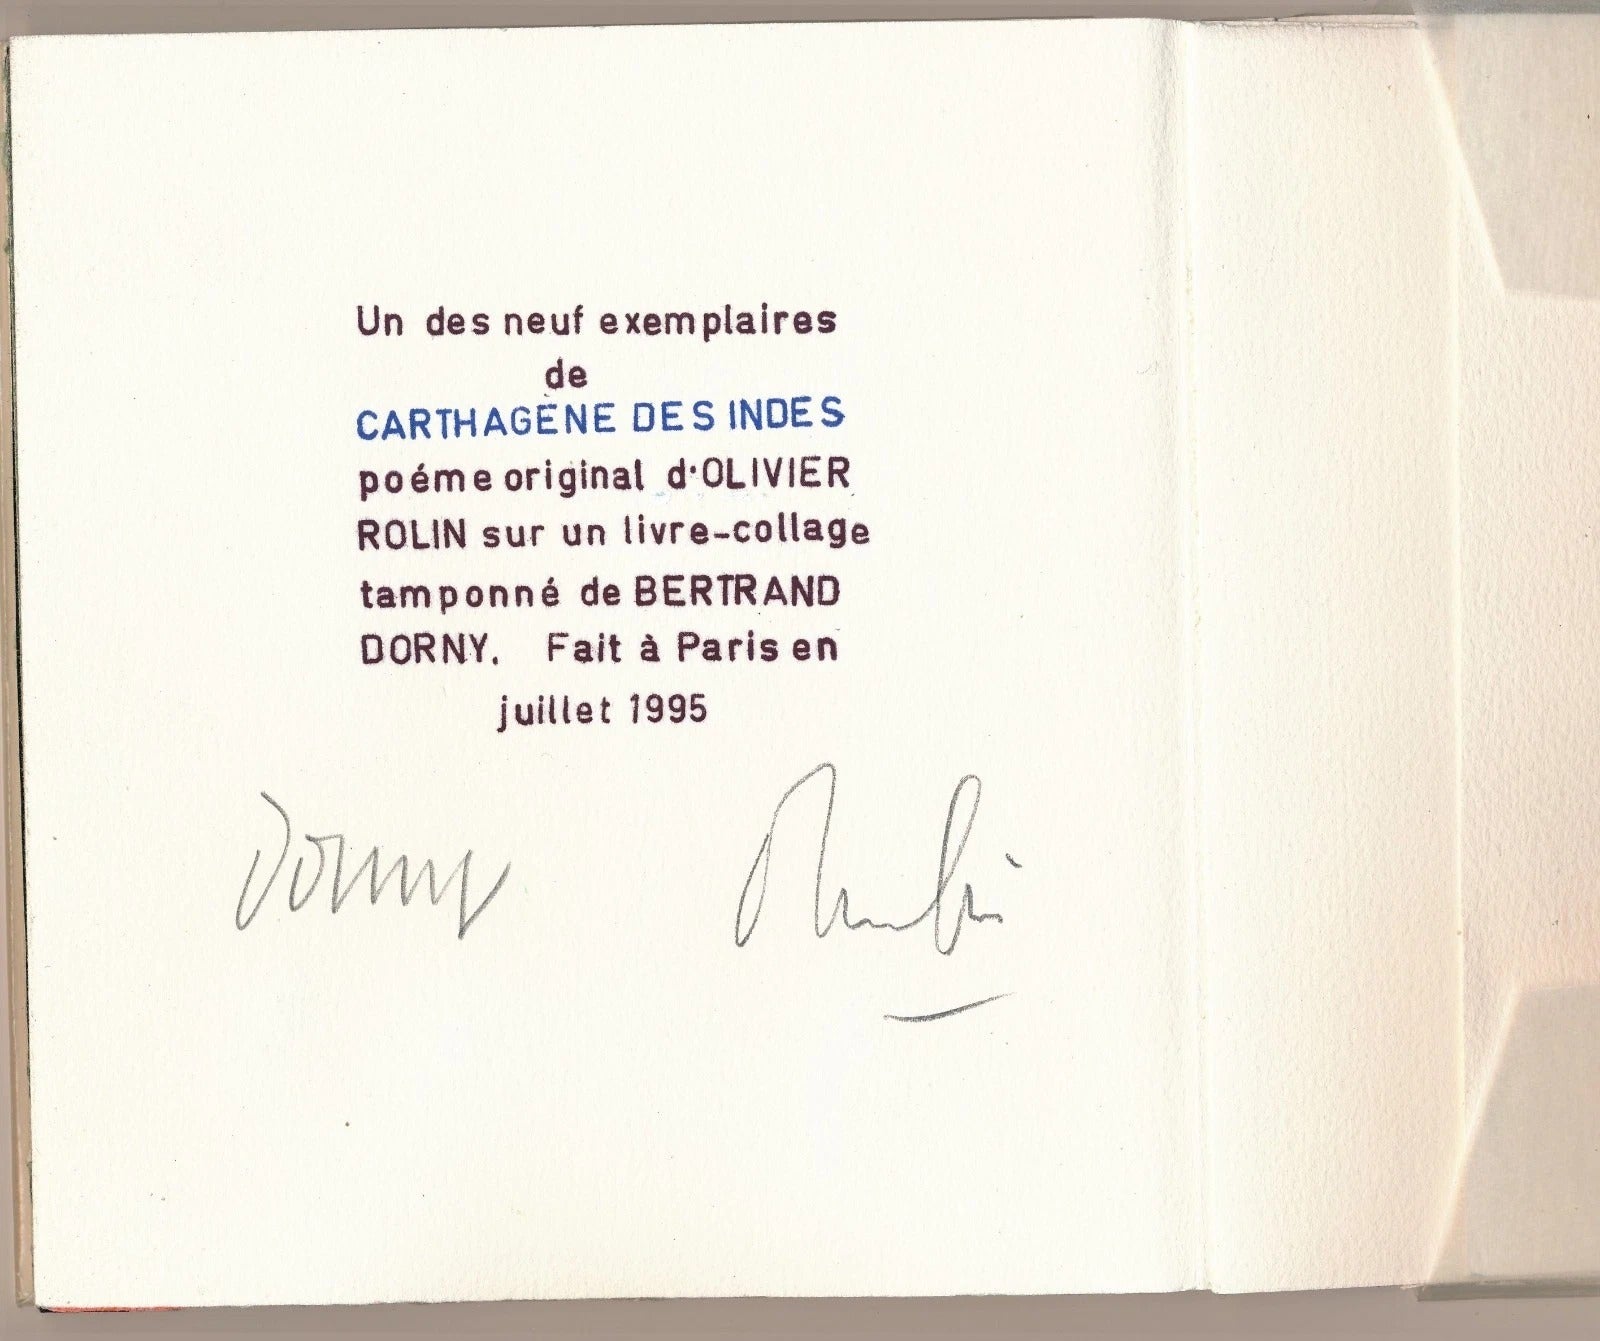 Un des neuf exemplaires
de
CARTHAGÈNE DES INDES
poéme original d'OLIVIER
ROLIN sur un livre-collage
tamponné de BERTRAND
DORNY. Fait à Paris en
juillet 1995
Dorny Rolin